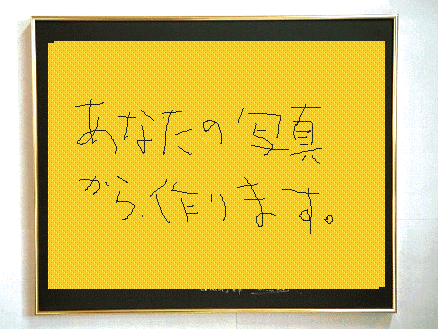 あなたの写真
から、作ります。